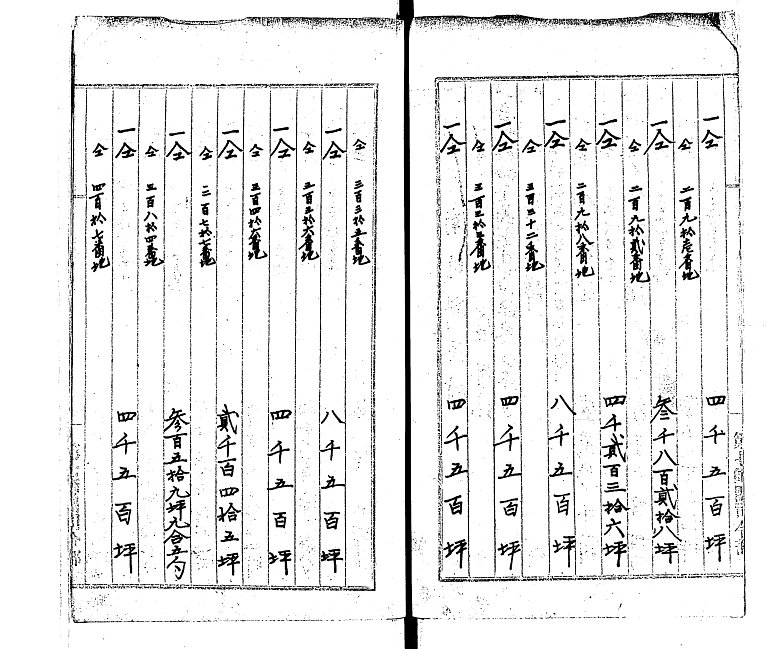 一仝 四千五百坪
仝 二百九拾壱番地
一仝 叁千八百貳拾八坪
仝 二百九拾貳番地
一仝 四千貳百三拾六坪
仝 二百九拾八番地
一仝 八千五百坪
仝 三百三十二番地
一仝 四千五百坪
仝 三百三拾三番地
一仝 四千五百坪
仝 三百三拾五番地
一仝 八千五百坪
仝 三百三拾六番地
一仝 四千五百坪
仝 三百四拾六番地
一仝 貳千百四拾五坪
仝 二百七拾七番地
一仝 参百五拾九坪九合五勺
仝 三百八拾四番地
一仝 四千五百坪
仝 四百拾七番地